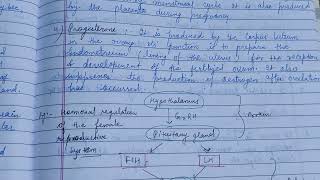 by the placenta during pregnancy
Progesterone : It is produced by the Corpus luteum
in the ovary. Its function is to prepare the
endometrium (lining of the uterus) for the reception
& development of the fertilized ovum. It also
suppresses the production of oestrogen after ovulation
has occurred.
Hypothalamus
Hormonal regulation
of the female
reproductive
system
GnRH
Pituitary gland
FSH
LH